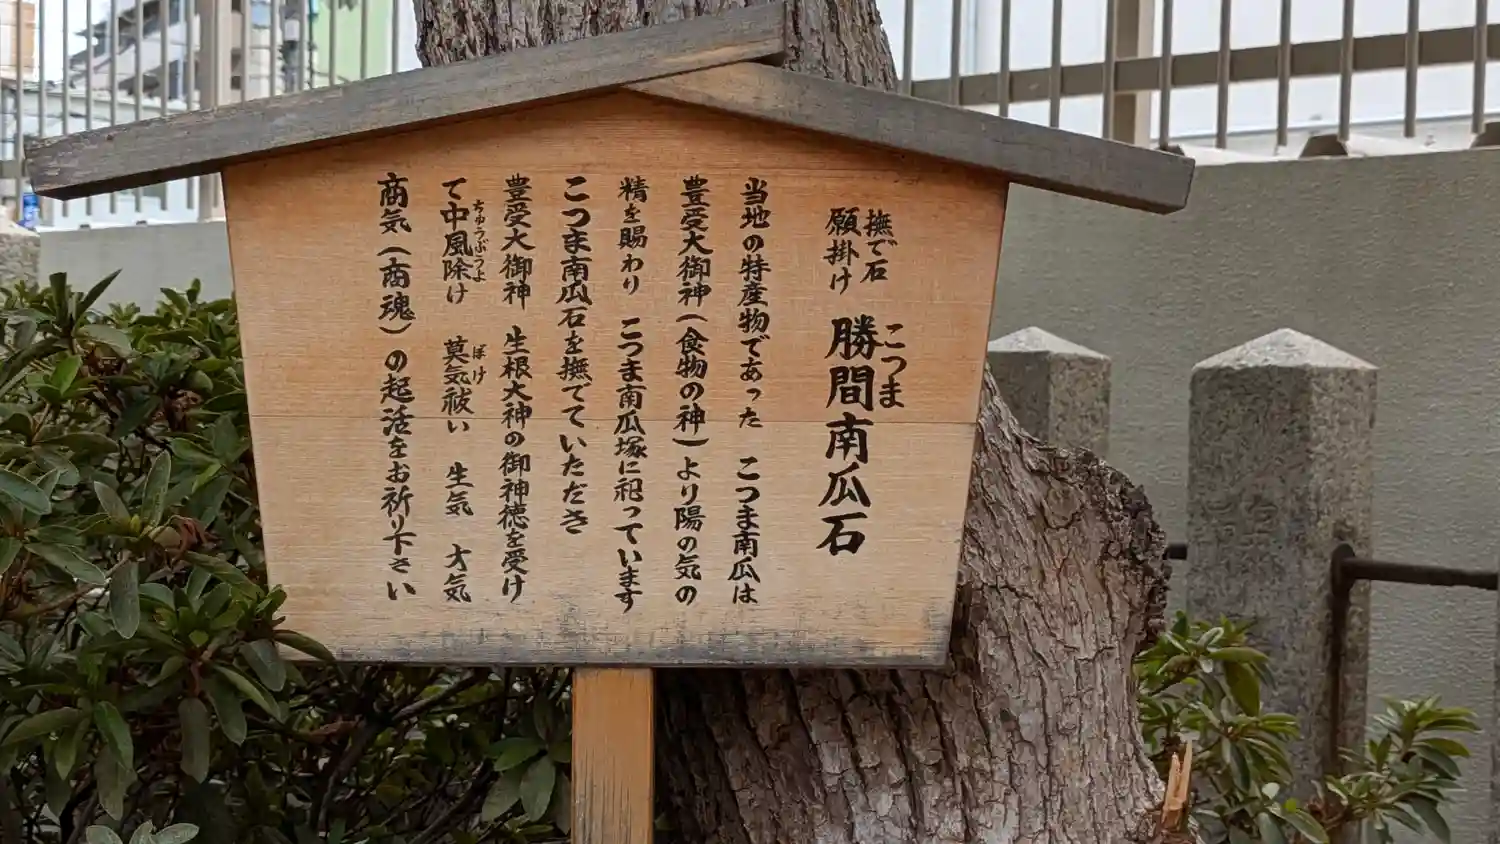 撫で石
願掛け
こつま
勝間南瓜石
当地の特産物であった こつま南瓜は
豊受大御神(食物の神)より陽の気の
精を賜わり こつま南瓜塚に祀っています
こつま南瓜石を撫でていただき
豊受大御神 生根大神の御神徳を受け
ちゅうぶうよ
て中風除け 莫気祓い 生気 才気
ぼけ
商気(商魂)の起活をお祈り下さい